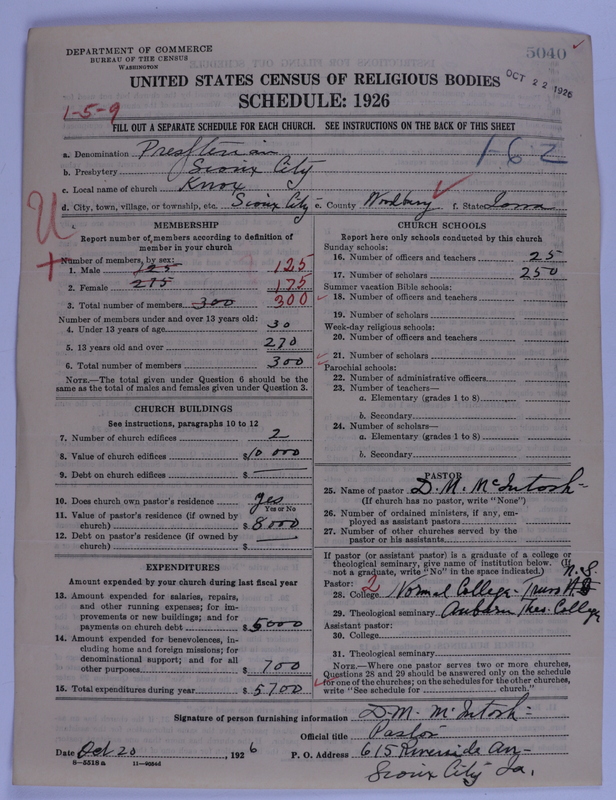 DEPARTMENT OF COMMERCE
BUREAU OF THE CENSUS
WASHINGTON
5040
UNITED STATES CENSUS OF RELIGIOUS BODIES
OCT 22 1926
SCHEDULE: 1926
1-5-9
FILL OUT A SEPARATE SCHEDULE FOR EACH CHURCH. SEE INSTRUCTIONS ON THE BACK OF THIS SHEET
a. Denomination Presbyterian
1-62
b. Presbytery Sioux City
c. Local name of church Knox
d. City, town, village, or township, etc. Sioux City e. County Woodbury f. State Iowa
MEMBERSHIP
Report number of members according to definition of
member in your church
Number of members, by sex:
1. Male 125 125
2. Female 275 175
3. Total number of members 300 300
Number of members under and over 13 years old:
4. Under 13 years of age 30
5. 13 years old and over 270
6. Total number of members 300
NOTE.—The total given under Question 6 should be the
same as the total of males and females given under Question 3.
CHURCH BUILDINGS
See instructions, paragraphs 10 to 12
7. Number of church edifices 2
8. Value of church edifices $10 000
9. Debt on church edifices $
10. Does church own pastor's residence yes
Yes or No
11. Value of pastor's residence (if owned by
church) $ 8000
12. Debt on pastor's residence (if owned by
church) $
EXPENDITURES
Amount expended by your church during last fiscal year
13. Amount expended for salaries, repairs,
and other running expenses; for im-
provements or new buildings; and for
payments on church debt $5000
14. Amount expended for benevolences, in-
cluding home and foreign missions; for
denominational support; and for all
other purposes $ 700
15. Total expenditures during year $ 5700
CHURCH SCHOOLS
Report here only schools conducted by this church
Sunday schools:
16. Number of officers and teachers 25
17. Number of scholars 250
Summer vacation Bible schools:
18. Number of officers and teachers
19. Number of scholars
Week-day religious schools:
20. Number of officers and teachers
21. Number of scholars
Parochial schools:
22. Number of administrative officers
23. Number of teachers—
a. Elementary (grades 1 to 8)
b. Secondary
24. Number of scholars—
a. Elementary (grades 1 to 8)
b. Secondary
PASTOR
25. Name of pastor D. M. McIntosh
(If church has no pastor, write "None")
26. Number of ordained ministers, if any, em-
ployed as assistant pastors
27. Number of other churches served by the
pastor or his assistants
If pastor (or assistant pastor) is a graduate of a college or
theological seminary, give name of institution below. (If
not a graduate, write "No" in the space indicated.)
Pastor: 2 N.S.
28. College Normal College - Truro
29. Theological seminary Auburn Theo. College
Assistant pastor:
30. College
31. Theological seminary
NOTE.—Where one pastor serves two or more churches,
Questions 28 and 29 should be answered only on the schedule
for one of the churches; on the schedules for the other churches,
write "See schedule for church."
Signature of person furnishing information D. M. McIntosh
Official title Pastor
Date Oct 20, 1926 P. O. Address 615 Riverside Av
8-5518a 11-90546
Sioux City Ia.